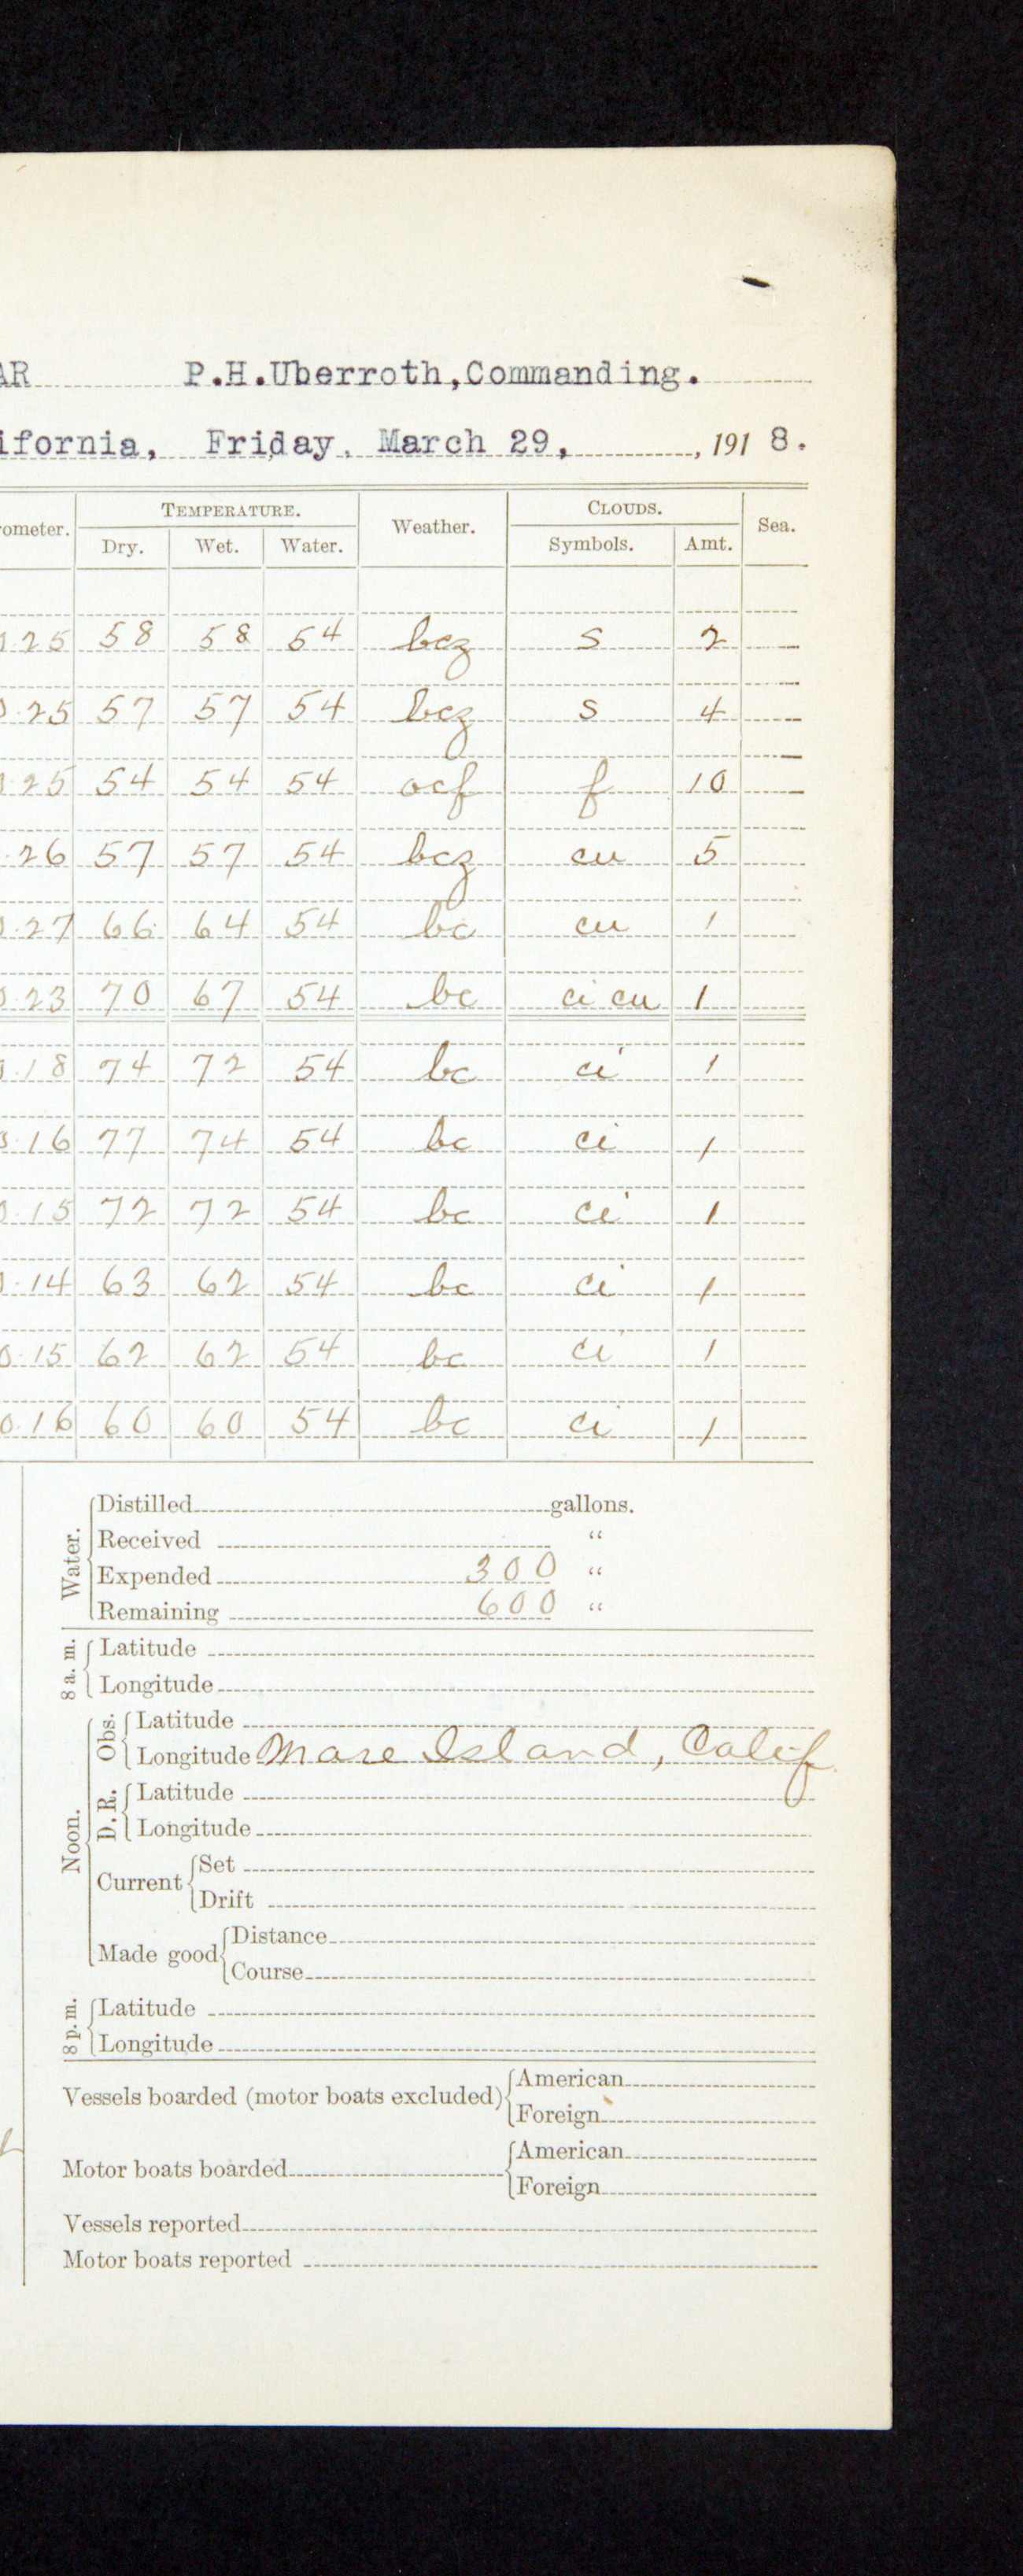 AR P.H.Uberroth,Commanding.
ifornia, Friday, March 29, , 191 8.
rometer. TEMPERATURE. Weather. CLOUDS. Sea.
Dry. Wet. Water. Symbols. Amt.
25 58 58 54 bcz s 2
0.25 57 57 54 bcz s 4
25 54 54 54 ocf f 10
.26 57 57 54 bcz cu 5
0.27 66 64 54 bc cu 1
0.23 70 67 54 bc ci cu 1
.18 74 72 54 bc ci 1
.16 77 74 54 bc ci 1
0.15 72 72 54 bc ci 1
0.14 63 62 54 bc ci 1
0.15 62 62 54 bc ci 1
0.16 60 60 54 bc ci 1
Water.
Distilled gallons.
Received "
Expended 300 "
Remaining 600 "
8 a. m.
Latitude
Longitude
Noon.
Obs.
Latitude
Longitude Mare Island, Calif
D. R.
Latitude
Longitude
Current
Set
Drift
Made good
Distance
Course
8 p. m.
Latitude
Longitude
Vessels boarded (motor boats excluded)
American
Foreign
Motor boats boarded
American
Foreign
Vessels reported
Motor boats reported